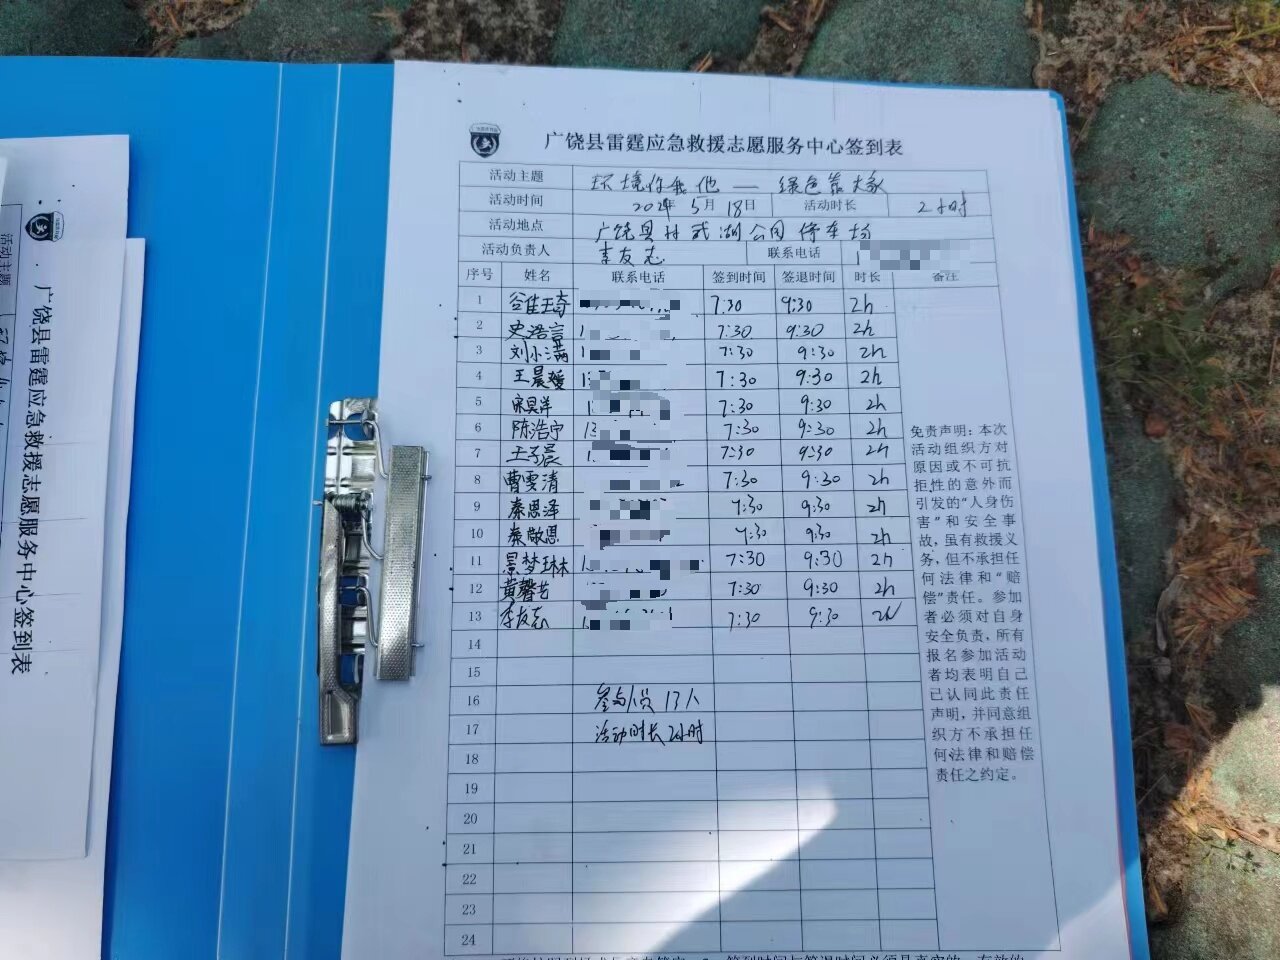 广饶县雷霆应急救援志愿服务中心签到表
活动主题 环境你我他 — 绿色靠大家
活动时间 2024年 5月 18日 活动时长 2小时
活动地点 广饶县孙武湖公园停车场
活动负责人 李友志 联系电话 1
序号 姓名 联系电话 签到时间 签退时间 时长 备注
1 谷佳奇 7:30 9:30 2h
2 史浩言 1 7:30 9:30 2h
3 刘小满 1 7:30 9:30 2h
4 王晨媛 13 7:30 9:30 2h
5 宋昊洋 1 7:30 9:30 2h
6 陈浩宁 13 7:30 9:30 2h
7 王子晨 1 7:30 9:30 2h
8 曹雯清 7:30 9:30 2h
9 秦思泽 7:30 9:30 2h
10 秦敬恩 7:30 9:30 2h
11 景梦琳 1 7:30 9:30 2h
12 黄馨艺 7:30 9:30 2h
13 李友志 1 7:30 9:30 2h
14
15
16 参与人员 13人
17 活动时长2小时
18
19
20
21
22
23
24
免责声明：本次
活动组织方对
原因或不可抗
拒性的意外而
引发的“人身伤
害”和安全事
故，虽有救援义
务，但不承担任
何法律和“赔
偿”责任。参加
者必须对自身
安全负责，所有
报名参加活动
者均表明自己
已认同此责任
声明，并同意组
织方不承担任
何法律和赔偿
责任之约定。
广饶县雷霆应急救援志愿服务中心签到表
活动主题